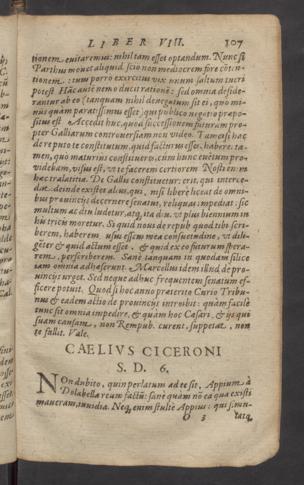 LIBER VIII. 307
tionem euitaremus: nihil tam esset optandum. Nunc si
Parthus mouet aliquid, scio non mediocrem fore conten-
tionem. tuus porro exercitus vix unum saltum tueri
potest. Hāc aūt nemo ducit rationē: sed omnia deside-
rantur ab eo, tanquam nihil denegatum sit ei, quo mi-
nus quàm paratissimus esset, qui publico negotio præpo-
situs est. Accedit huc, quod successionem futuram pro-
pter Galliarum controuersiam non video. Tametsi hac
de re puto te constitutum, quid facturus esses, habere: ta-
men, quo maturius constitueres, cum hunc euētum pro-
videbam, visum est, vt te facerem certiorem. Nosti enim
hæc tralatitia. De Gallijs constituetur: erit, qui interce-
dat. deinde existet alius, qui, nisi liberè liceat de omni-
bus prouincijs decernere senatui, reliquas impediat. sic
multum ac diu ludetur. atq, ita diu, vt plus biennium in
his tricis moretur. Si quid noui de repub. quod tibi scri-
berem, haberem, usus essem mea consuetudine, vt dili-
gēter & quid actum esset, & quid ex eo futurum spera-
rem, perscriberem. Sanè tanquam in quodam silice
iam omnia adhæserunt. Marcellus idem illud de proui-
ncijs urget. Sed neque adhuc frequentem senatum ef-
ficere potuit. Quod si hoc anno præterito Curio Tribu-
nus & eadem actio de prouincijs introibit: quàm facile
tunc sit omnia impedire, & quàm hoc Cæsari, & ijs qui
suam causam, non Rempub. curent, suppetat, non
te fallit. Vale.
CAELIVS CICERONI
S. D. 6.
NOn dubito, quin perlatum ad te sit, Appium à
Dolabella reum factū: sanè quam nō ea qua existi-
maueram, inuidia. Neq, enim stultè Appius: qui simu-
O 3 latq,